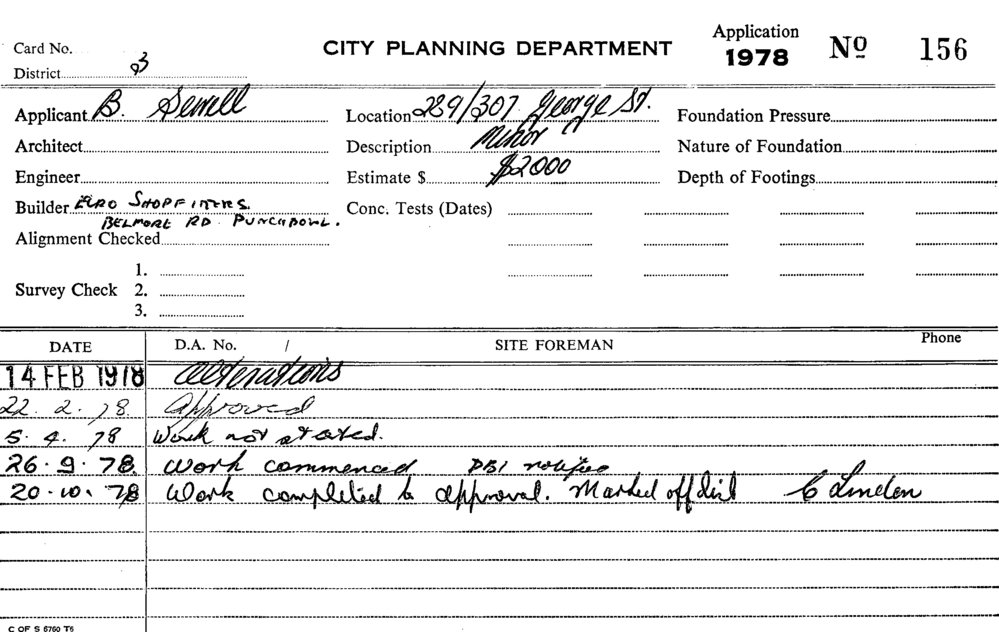 Card No.
CITY PLANNING DEPARTMENT
Application 1978 No 156
District 3
Applicant B. Sewell
Location 289/307 George St.
Foundation Pressure
Architect
Description Minor
Nature of Foundation
Engineer
Estimate $ $2000
Depth of Footings
Builder Euro Shopfitters.
Belmore Rd. Punchbowl.
Conc. Tests (Dates)
Alignment Checked
1.
Survey Check 2.
3.
DATE D.A. No. / SITE FOREMAN Phone
14 FEB 1978 Alterations
22. 2. 78. Approved
5. 4. 78 Work not started.
26. 9. 78. Work commenced DBI
20. 10. 78 Work completed to approval. Marked off
C OF S 6760 T5